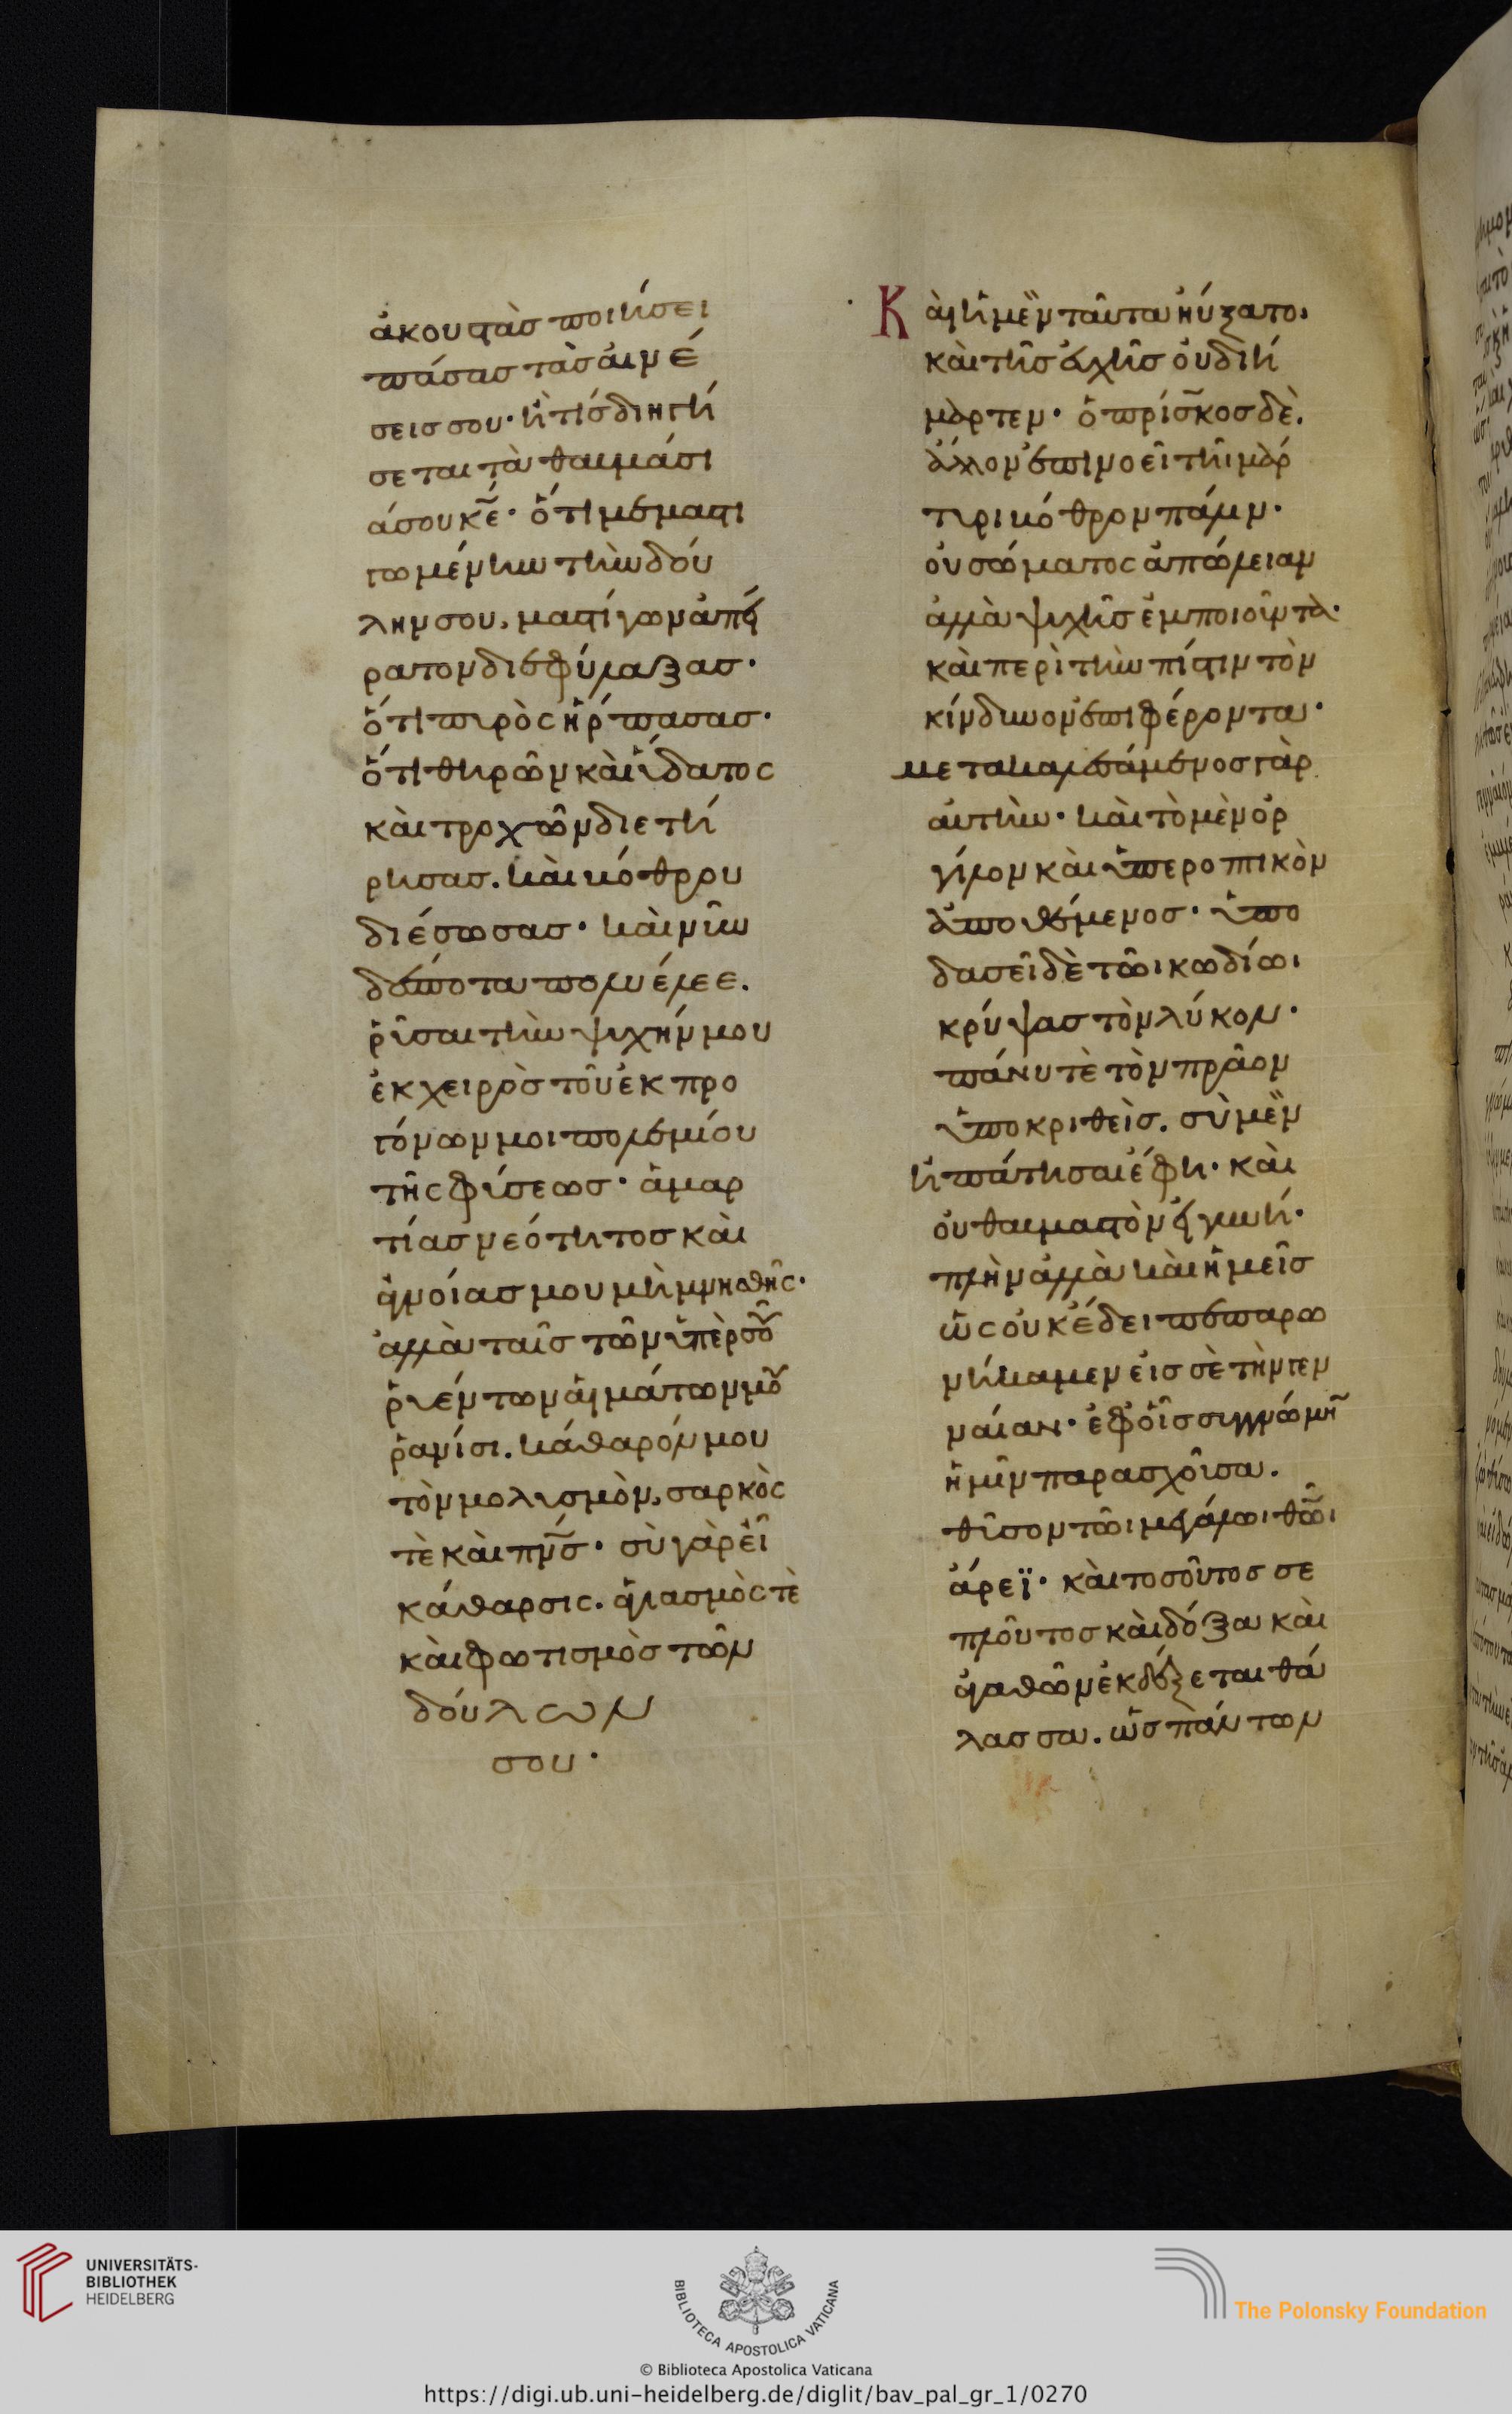 ἀκουστὰσ ποιήσει
πάσασ τὰσ αἰνέ
σεισ σου· ἢ τίσ διηγή
σεται τὰ θαυμάσι
ά σου κ̅ε̅· ὅτι με μαστι
γωμένην τὴν δού
λην σου, μαστίγων ἀπεί
ρατον διεφύλαξασ·
ὅτι πυρὸς ἥρπασασ·
ὅτι θηρῶν καὶ ὕδατος
καὶ τροχῶν διετή
ρησασ. καὶ κόθρου
διέσωσασ· καὶ νῦν
δέσποτα πολυέλεε.
ῥῦσαι τὴν ψυχήν μου
ἐκ χειρὸσ τοῦ ἐκ προ
γόνων μοι πολεμίου
τῆς φύσεωσ· ἁμαρ
τίασ νεότητοσ καὶ
ἀγνοίασ μου μὴ μνησθῆς·
ἀλλὰ ταῖσ τῶν ὑπὲρ σοῦ
ῥυέντων αἱμάτων μου
ῥανίσι. κάθαρόν μου
τὸν μολυσμὸν, σαρκὸς
τὲ καὶ πν̅σ̅· σὺ γὰρ εἶ
κάθαρσις. ἱλασμὸς τὲ
καὶ φωτισμὸσ τῶν
δούλων
σου·
Καὶ ἡ μὲν ταῦτα ηὔξατο·
καὶ τῆσ εὐχῆσ οὐδιή
μαρτεν· ὁ πρίσκοσ δὲ.
ἄλλον ἐπινοεῖ τῆι μάρ
τυρι κόθρον πάλιν·
οὐ σώματος ἀπώλειαν
ἀλλὰ ψυχῆσ ἐμποιοῦντα·
καὶ περὶ τὴν πίστιν τὸν
κίνδυνον ἐπιφέροντα·
μετακαλεσάμενοσ γὰρ
αὐτὴν· καὶ τὸ μὲν ὀρ
γίλον καὶ ὑπεροπτικὸν
ἀποθέμενοσ· ὑπο
δασεῖ δὲ τῶι κωδίωι
κρύψασ τὸν λύκον·
πάνυ τὲ τὸν πρᾶον
ὑποκριθεὶσ. σὺ μὲν
ἠπάτησαι ἔφη· καὶ
οὐ θαυμαστὸν εἰ γυνή·
πλὴν ἀλλὰ καὶ ἡμεῖσ
ὡς οὐκ ἔδει πεπαρω
νήκαμεν εἰσ σὲ τὴν γεν
ναίαν· ἐφ' οἷσ συγγνώμη̅
ἡμῖν παρασχοῦσα.
θῦσον τῶι μεγάλωι θεῶι
ἄρεϊ· καὶ τοσοῦτοσ σε
πλοῦτοσ καὶ δόξα καὶ
ἀγαθῶν ἐκδέξεται θά
λασσα. ὡσ πάντων
UNIVERSITÄTS-
BIBLIOTHEK
HEIDELBERG
BIBLIOTECA APOSTOLICA VATICANA
© Biblioteca Apostolica Vaticana
The Polonsky Foundation
https://digi.ub.uni-heidelberg.de/diglit/bav_pal_gr_1/0270